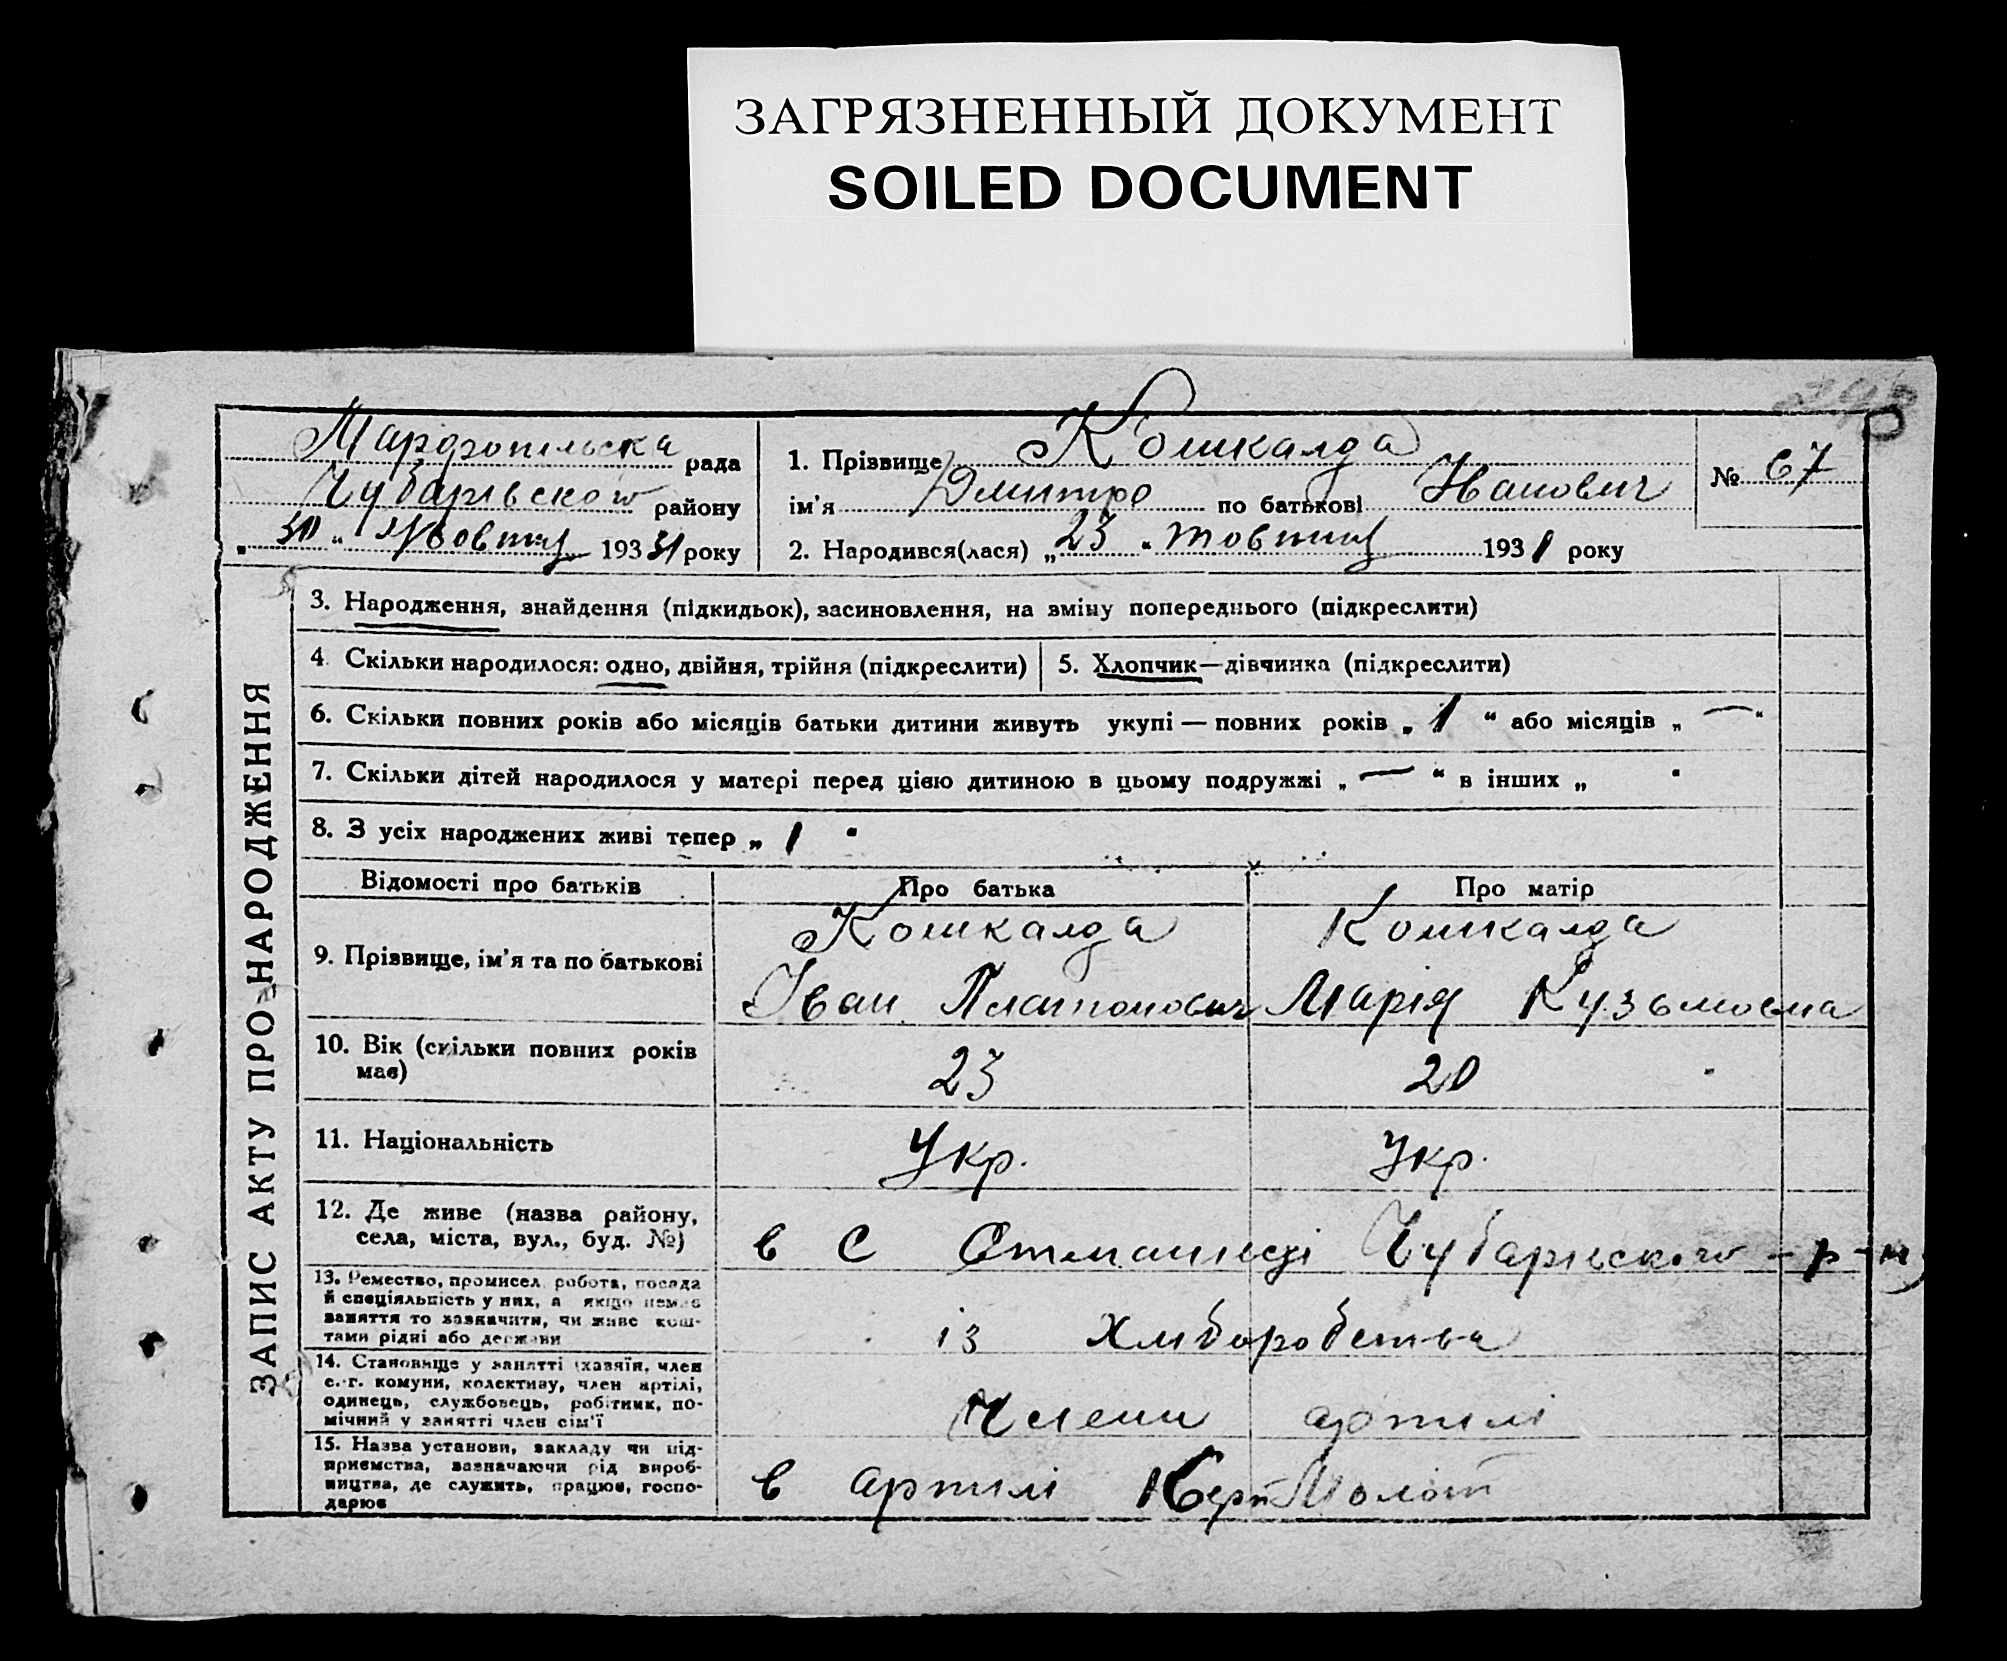 ЗАГРЯЗНЕННЫЙ ДОКУМЕНТ
SOILED DOCUMENT
Марфопільска рада
Чубарівского району
„ 30 “ Жовтня 1931 року
1. Прізвище Кошкалда
ім'я Дмитро по батькові Іванович
2. Народився(лася) „ 23 “ жовтня 1931 року
№ 67
ЗАПИС АКТУ ПРО НАРОДЖЕННЯ
3. Народження, знайдення (підкидьок), засиновлення, на зміну попереднього (підкреслити)
4. Скільки народилося: одно, двійня, трійня (підкреслити)
5. Хлопчик—дівчинка (підкреслити)
6. Скільки повних років або місяців батьки дитини живуть укупі — повних років „ 1 “ або місяців „ — “
7. Скільки дітей народилося у матері перед цією дитиною в цьому подружжі „ — “ в інших „ “
8. З усіх народжених живі тепер „ 1 “
Відомості про батьків
Про батька
Про матір
9. Прізвище, ім'я та по батькові
Кошкалда
Іван Платонович
Кошкалда
Марія Кузьмовна
10. Вік (скільки повних років
має)
23
20
11. Національність
Укр.
Укр.
12. Де живе (назва району,
села, міста, вул., буд. №)
в с Чубарівского - р - н
13. Ремество, промисел, робота, посада
й спеціяльність у них, а якщо немає
заняття то зазначити, чи живе кош-
тами рідні або держави
із Хліборобства
14. Становище у занятті (хазяїн, член
с.-г. комуни, колективу, член артілі,
одинець, службовець, робітник, по-
мічний у занятті член сім'ї
Члени артілі
15. Назва установи, закладу чи під-
приємства, зазначаючи рід вироб-
ництва, де служить, працює, госпо-
дарює
в артілі Молот